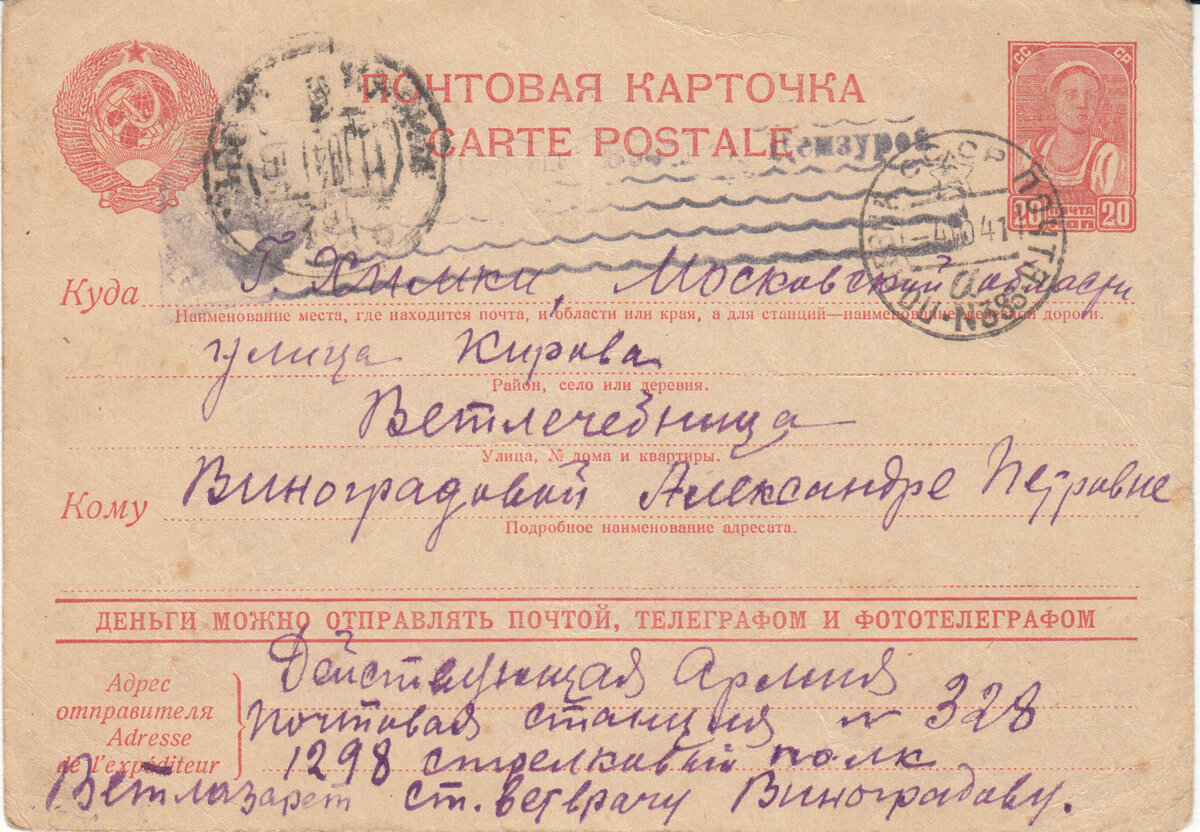 ПОЧТОВАЯ КАРТОЧКА
CARTE POSTALE
СС СР
ПОЧТА
20 КОП 20
Куда г. Химки, Московской области
Наименование места, где находится почта, и области или края, а для станций—наименование железной дороги.
улица Кирова
Район, село или деревня.
Ветлечебница
Улица, № дома и квартиры.
Кому Виноградовой Александре Петровне
Подробное наименование адресата.
ДЕНЬГИ МОЖНО ОТПРАВЛЯТЬ ПОЧТОЙ, ТЕЛЕГРАФОМ И ФОТОТЕЛЕГРАФОМ
Адрес отправителя
Adresse de l'expéditeur
Действующая Армия
почтовая станция № 328
1298 стрелковый полк
Ветлазарет ст. ветврачу Виноградову.